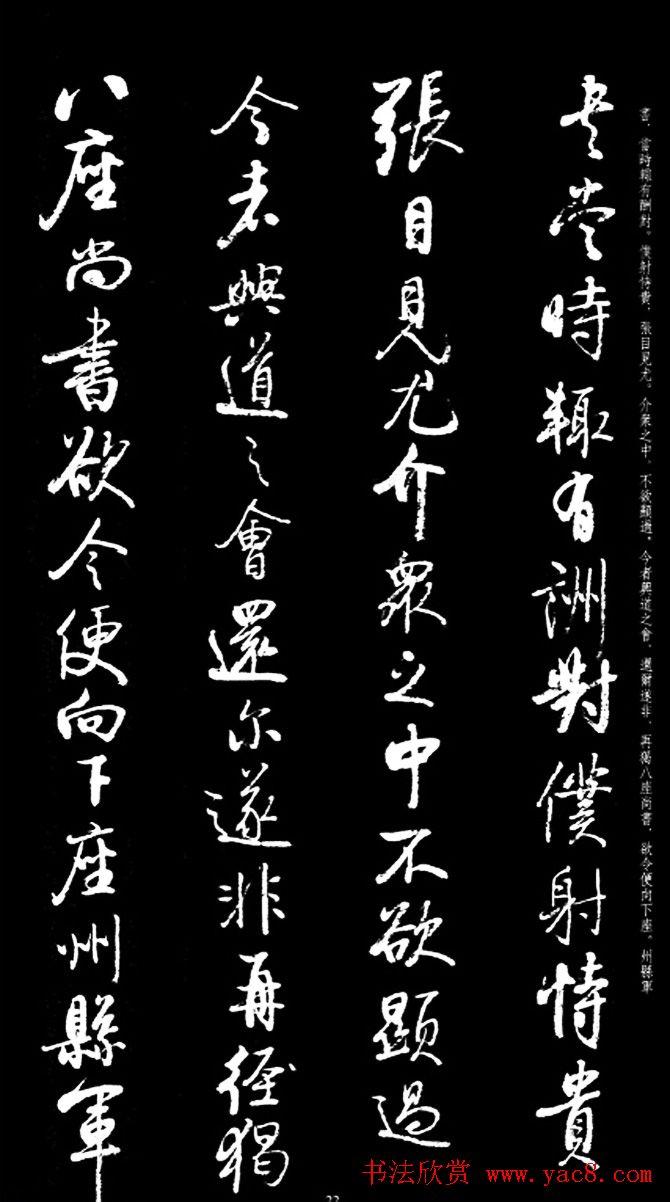 書，當時輒有酬對。僕射恃貴，張目見尤。介衆之中，不欲顯過，今者興道之會，還爾遂非，再猲八座尚書，欲令便向下座。州縣軍
書當時輒有詶對僕射恃貴
張目見尤介衆之中不欲顯過
今者興道之會還尔遂非再徑猲
八座尚書欲令便向下座州縣軍
书法欣赏 www.yac8.com